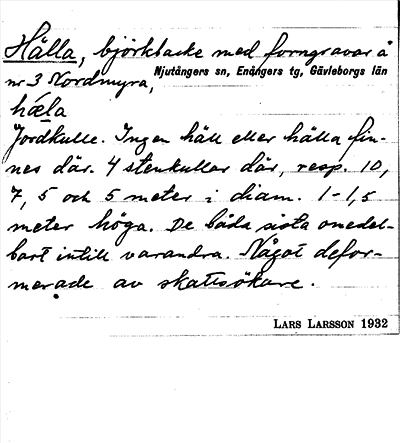 Hälla, björkbacke med forngravar å
Njutångers sn, Enångers tg, Gävleborgs län
nr 3 Nordmyra,
hæla
Jordkulle. Ingen häll eller hälla fin-
nes där. 4 stenkullar där, resp. 10,
7, 5 och 5 meter i diam. 1-1,5
meter höga. De båda sista omedel-
bart intill varandra. Något defor-
merade av skattsökare.
LARS LARSSON 1932